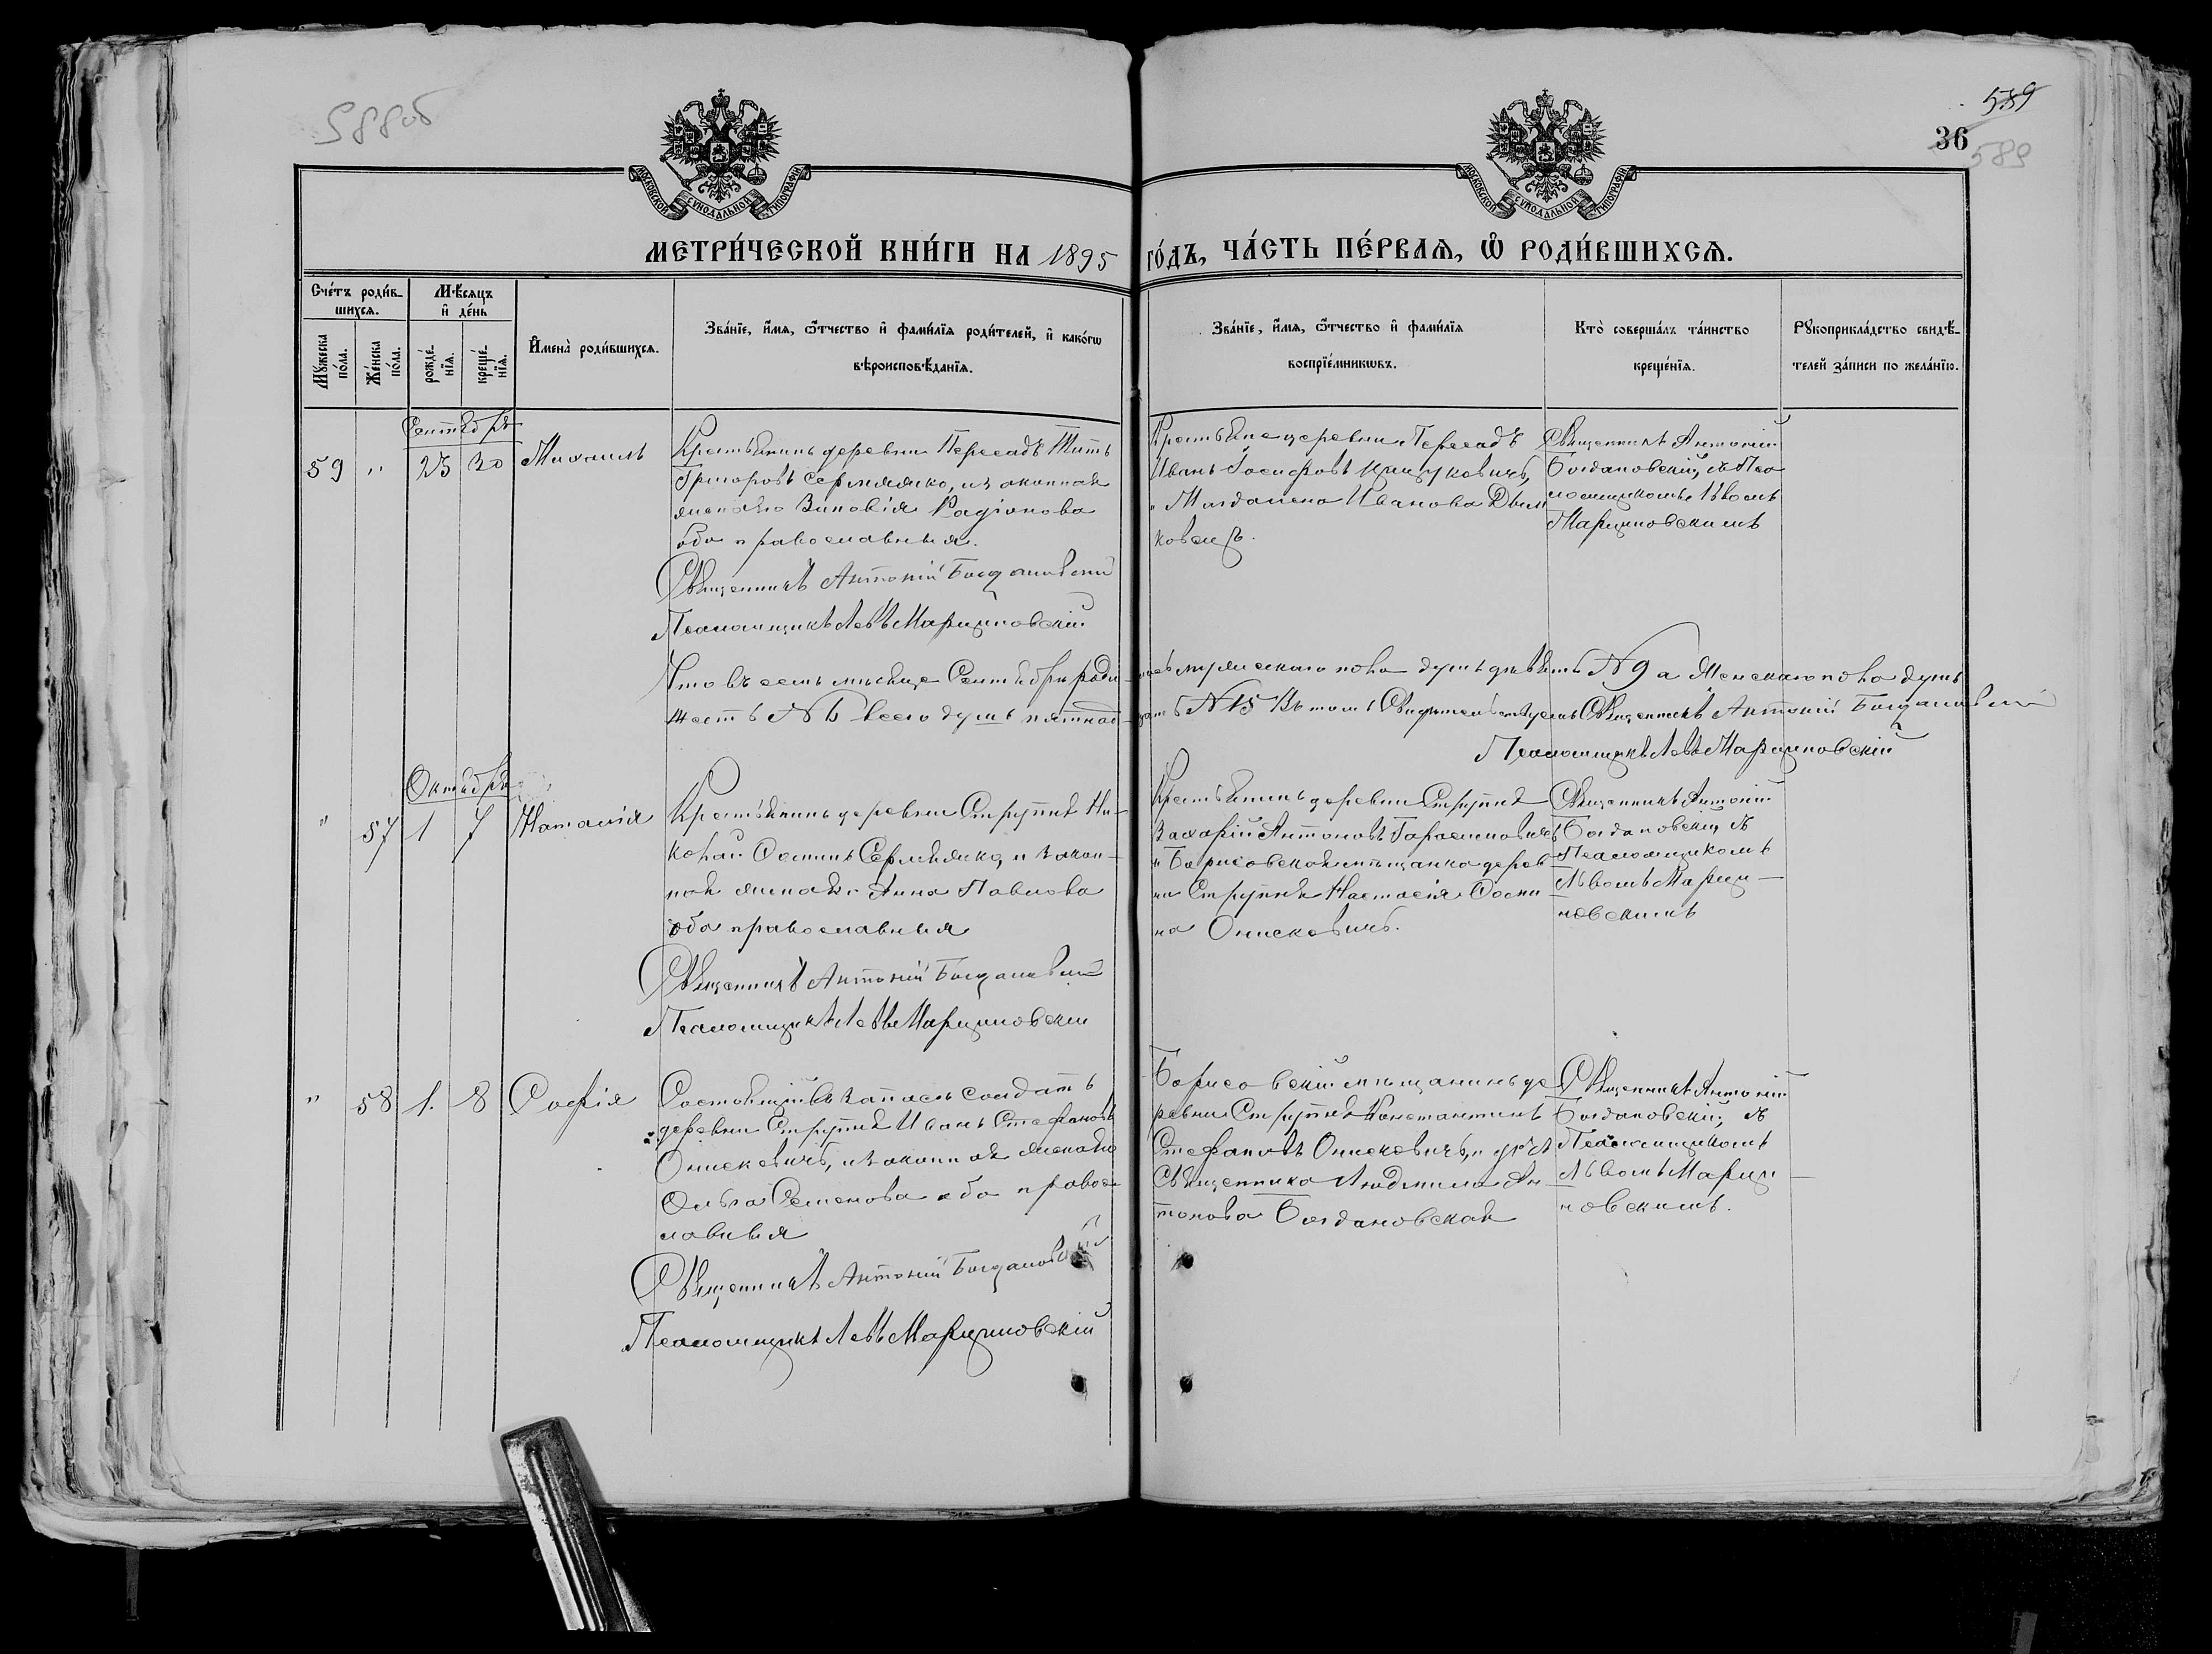 588об
589
36
589
МОСКОВСКОЙ СѴНОДАЛЬНОЙ ТИПОГРАФІИ
МОСКОВСКОЙ СѴНОДАЛЬНОЙ ТИПОГРАФІИ
МЕТРИ́ЧЕСКОЙ КНИ́ГИ НА 1895 ГО́ДЪ, ЧА́СТЬ ПЕ́РВАѦ, Ѽ РОДИ́ВШИХСѦ.
Сче́тъ роди́в-
шихсѧ.
Мꙋ́жеска по́ла.
Же́нска по́ла.
Мѣ́сѧцъ и҆ де́нь
рожде́-нїѧ.
креще́-нїѧ.
И҆мена̀ роди́вшихсѧ.
Зва́нїе, и҆́мѧ, ѻ҆́тчество и҆ фами́лїѧ роди́телей, и҆ како́гѡ
вѣроисповѣ́данїѧ.
Зва́нїе, и҆́мѧ, ѻ҆́тчество и҆ фами́лїѧ
воспрїе́мникѡвъ.
Кто̀ соверша́лъ та́инство
креще́нїѧ.
Рꙋкоприкла́дство свидѣ́-
телей за́писи по жела́нїю.
Сентябрь
59 " 25 30 Михаилъ
Крестьянинъ деревни Пересадъ Титъ
Григоровъ Сермяжко, и законная
жена его Зиновія Радіонова
оба православныя.
Священникъ Антоній Богдановскій
Псаломщикъ Левъ Марциновскій
Крестьяне деревни Пересадъ
Иванъ Іосифовъ
и Магдалена Иванова
Священникъ Антоній
Богдановскій, съ Пса
ломщикомъ Львомъ
Марциновскимъ
Что въ семъ мѣсяце Сентябри роди-лось мужескаго пола душъ девять N 9 а Женскаго пола душъ
шесть N 6 всего душъ пятнад-цать N 15 Въ томъ Свидѣтельствуемъ Священникъ Антоній Богдановскій
Псаломщикъ Левъ Марциновскій
Октябрь
" 57 1 7 Наталія
Крестьянинъ деревни Струпня Ни-
колай Осиповъ Сермяжко, и закон-
ная жена его Анна Павлова
оба православныя
Священникъ Антоній Богдановскій
Псаломщикъ Левъ Марциновскій
Крестьянинъ деревни Струпня
Захарій Антоновъ Гарасимовичъ
и Борисовская мѣщанка дерев
ни Струпня Настасія Осипо
ва Онисковичъ.
Священникъ Антоній
Богдановскій, съ
Псаломщикомъ
Львомъ Марци-
новскимъ
" 58 1. 8 Софія
Состоящій въ запасѣ солдатъ
деревни Струпня Иванъ Стефановъ
Онисковичъ, и законная жена его
Ольга Семенова оба правос
лавныя
Священникъ Антоній Богдановскій
Псаломщикъ Левъ Марциновскій
Борисовскій мѣщанинъ де
ревни Струпня Константинъ
Стефановъ Онисковичъ, и дочь
Священника Людмила Ан
тонова Богдановская
Священникъ Антоній
Богдановскій, съ
Псаломщикомъ
Львомъ Марци-
новскимъ.